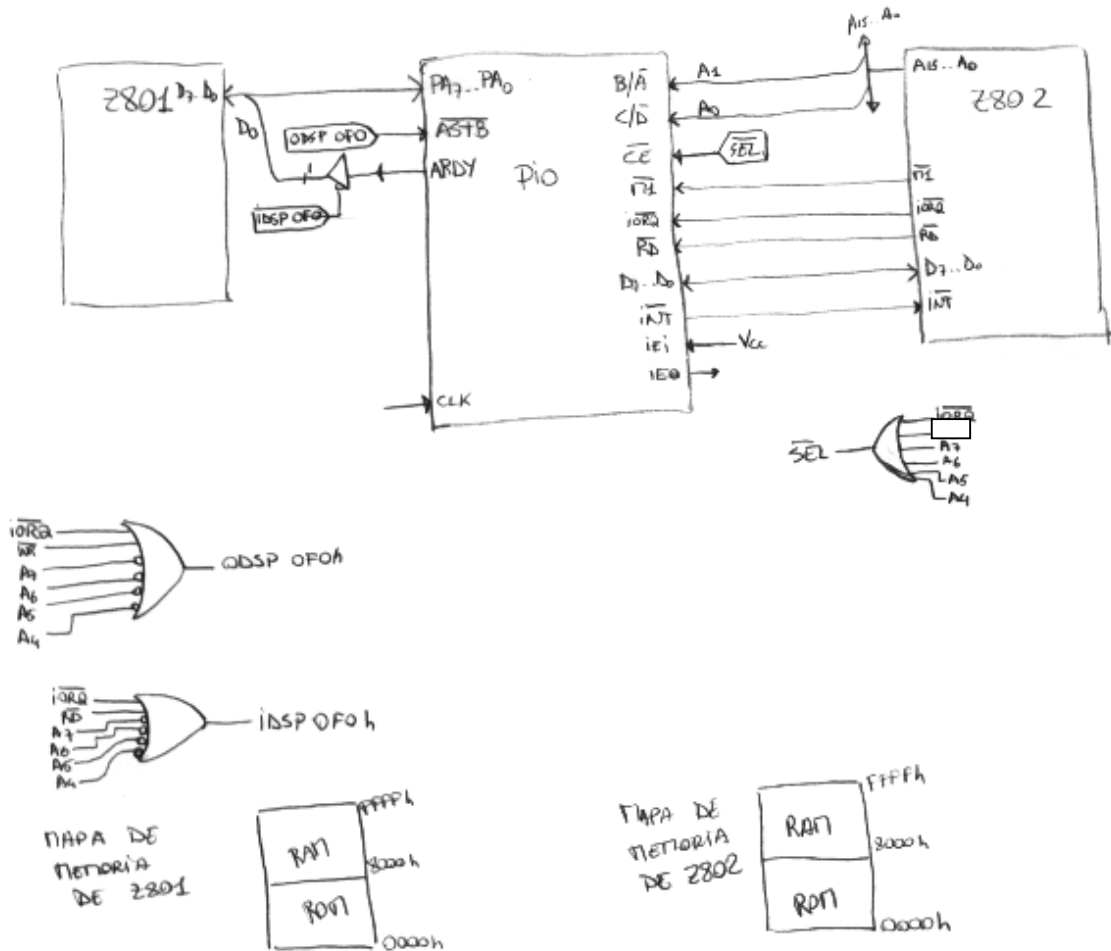 A15..A0
Z801
D7..D0
D0
ODSP OF0
IDSP OF0
PA7...PA0
ASTB
ARDY
CLK
PIO
B/A
C/D
CE
M1
IORQ
RD
D7..D0
INT
IEI
IEO
A1
A0
SEL
Vcc
A15..A0
Z802
M1
IORQ
RD
D7..D0
INT
SEL
IORQ
A7
A6
A5
A4
IORQ
WR
A7
A6
A5
A4
ODSP OF0h
IORQ
RD
A7
A6
A5
A4
IDSP OF0h
MAPA DE
MEMORIA
DE Z801
RAM
ROM
FFFFh
8000h
0000h
MAPA DE
MEMORIA
DE Z802
RAM
ROM
FFFFh
8000h
0000h